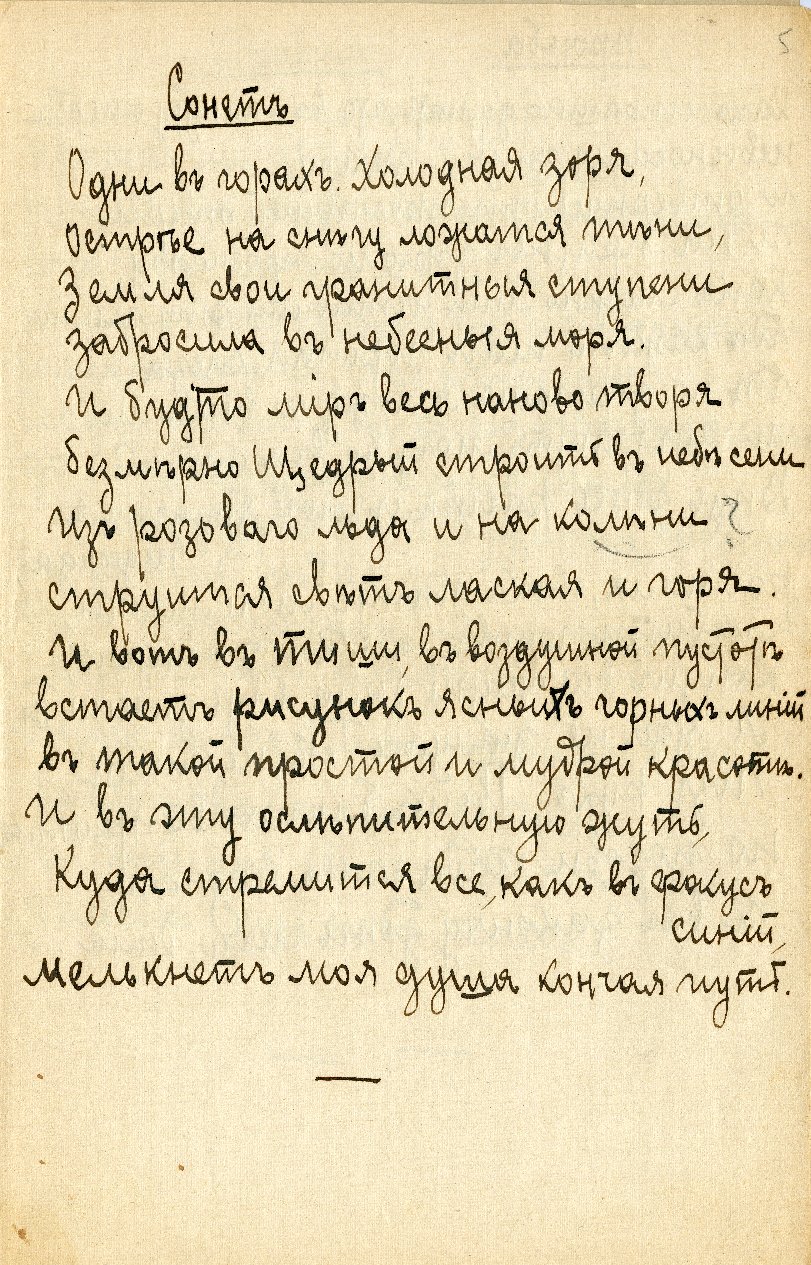 5
Сонетъ
Одни въ горахъ. Холодная зоря,
острѣе на снѣгу ложатся тѣни,
Земля свои гранитныя ступени
забросила въ небесныя моря.
И будто міръ весь наново творя
безмѣрно Щедрый строитъ въ небѣ сени
Изъ розоваго льда и на колѣни ?
струится свѣтъ лаская и горя.
И вотъ въ тиши, въ воздушной пустотѣ
встаетъ рисунокъ ясныхъ горныхъ линій
въ такой простой и мудрой красотѣ.
И въ эту ослѣпительную жуть,
Куда стремится все, какъ въ фокусъ
синій,
мелькнетъ моя душа кончая путь.